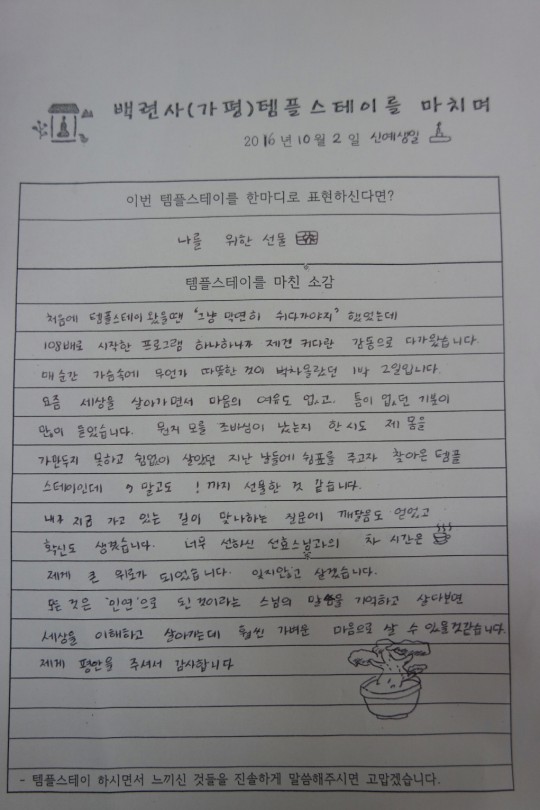 백련사(가평)템플스테이를 마치며
2016년 10월 2일 신예생일
이번 템플스테이를 한마디로 표현하신다면?
나를 위한 선물
템플스테이를 마친 소감
처음에 템플스테이 왔을땐 "그냥 막연히 쉬다가야지" 했었는데
108배로 시작한 프로그램 하나하나가 제겐 커다란 감동으로 다가왔습니다.
매순간 가슴속에 무언가 따뜻한 것이 벅차올랐던 1박 2일입니다.
요즘 세상을 살아가면서 마음의 여유도 없고. 틈이 없던 기분이
많이 들었습니다. 뭔지 모를 조바심이 났는지 한시도 제 몸을
가만두지 못하고 쉼없이 살았던 지난 날들에 쉼표를 주고자 찾아온 템플
스테이인데 , 말고도 ! 까지 선물한 것 같습니다.
내가 지금 가고 있는 길이 맞나하는 질문에 깨달음도 얻었고
확신도 생겼습니다. 너무 선하신 선효스님과의 차 시간은
제게 큰 위로가 되었습니다. 잊지않고 살겠습니다.
모든 것은 '인연'으로 된 것이라는 스님의 말씀을 기억하고 살다보면
세상을 이해하고 살아가는데 훨씬 가벼운 마음으로 살 수 있을것같습니다.
제게 평안을 주셔서 감사합니다
- 템플스테이 하시면서 느끼신 것들을 진솔하게 말씀해주시면 고맙겠습니다.